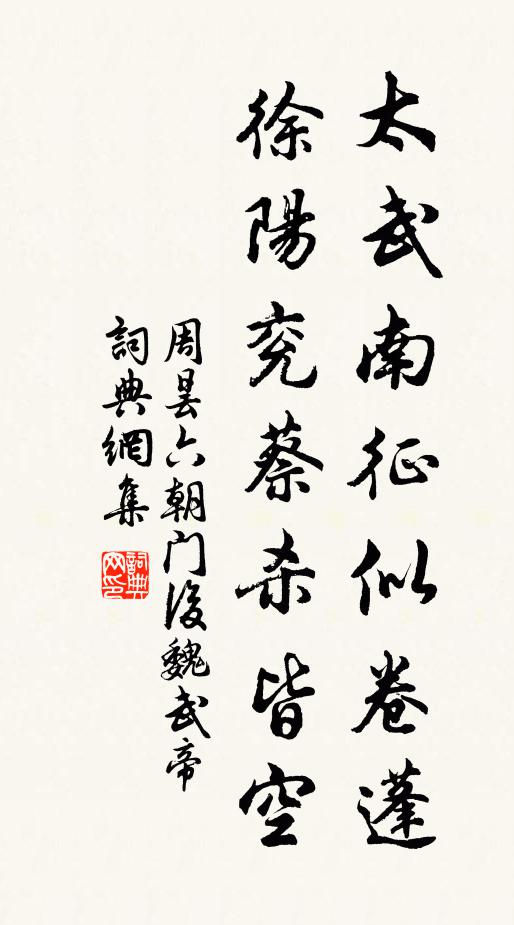 太武南征似卷蓬
徐陽兖蔡杀皆空
周曇六朝门後魏武帝
詞典網集
詞典
网印